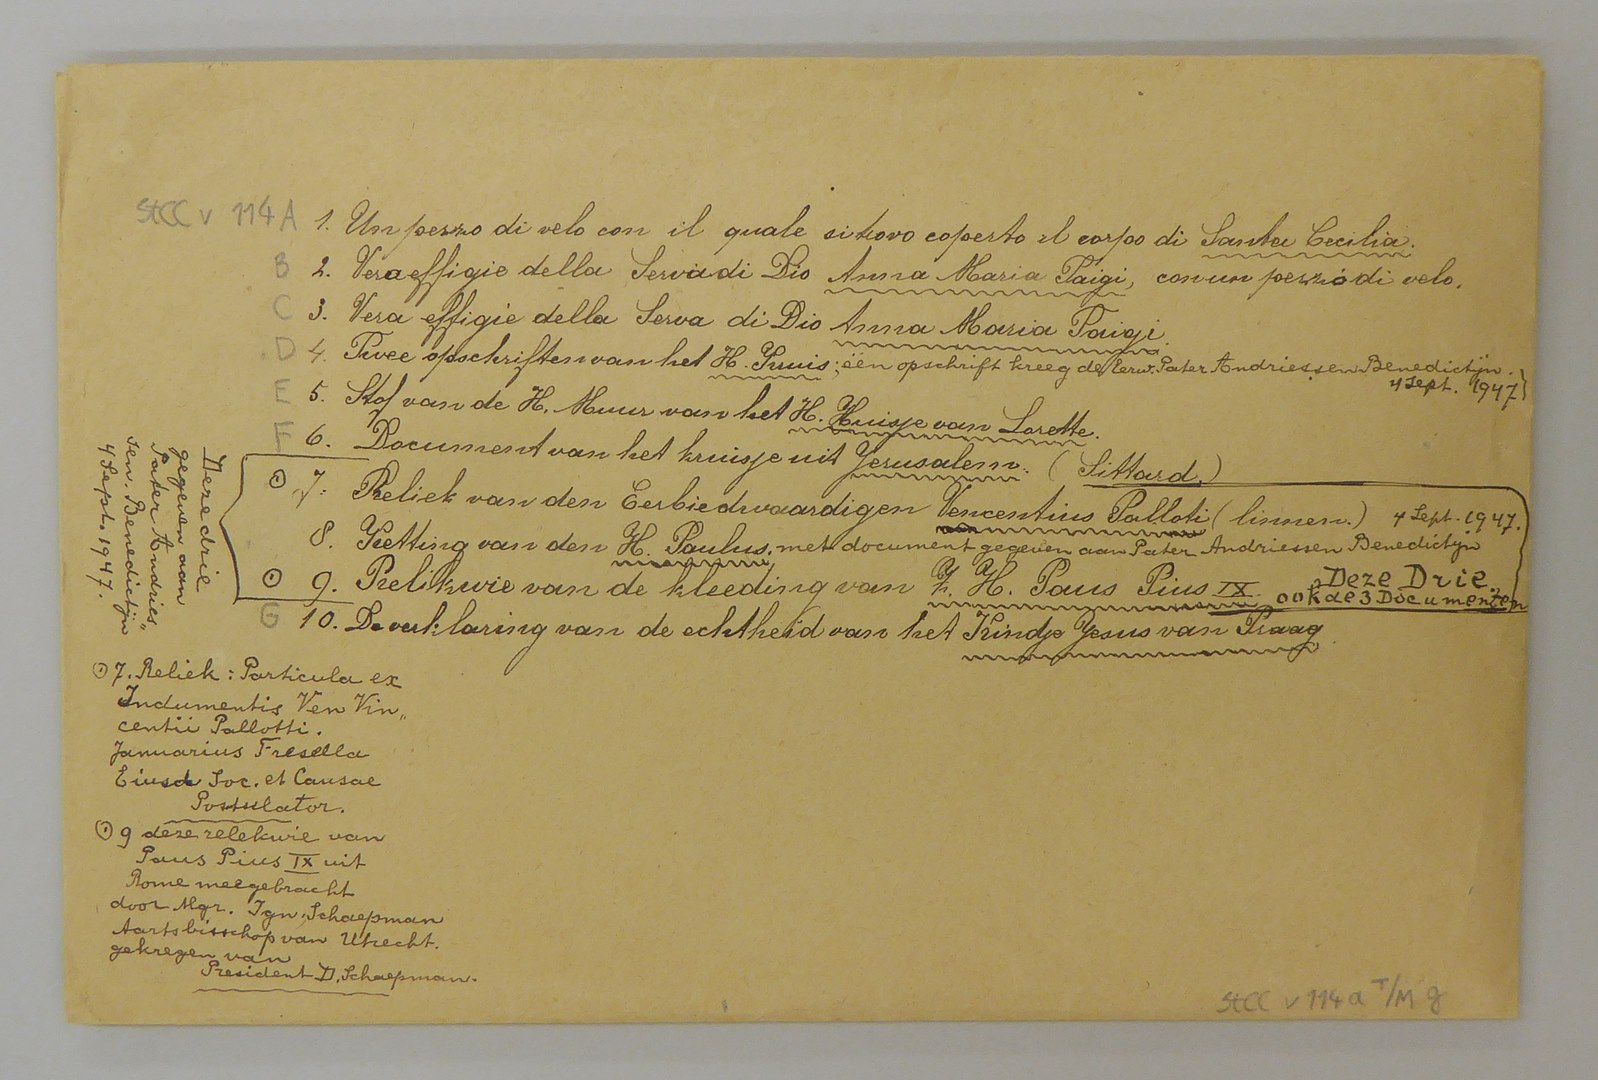 StCC v 114 A 1. Un pezzo di velo con il quale si trovo coperto il corpo di Santa Cecilia.
B 2. Vera effigie della Serva di Dio Anna Maria Taigi, con un pezzo di velo.
C 3. Vera effigie della Serva di Dio Anna Maria Taigi.
D 4. Twee opschriften van het H. Kruis; één opschrift kreeg de Eerw. Pater Andriessen Benedictijn.
4 Sept. 1947
E 5. Stof van de H. Muur van het H. Huisje van Lorette.
F 6. Document van het kruisje uit Jerusalem. (Sittard.)
7. Reliek van den Eerbiedwaardigen Vencentius Palloti (linnen.) 4 Sept. 1947.
8. Ketting van den H. Paulus. met document gegeven aan Pater Andriessen Benedictijn
9. Relikwie van de kleeding van Z. H. Paus Pius IX. Deze Drie
ook de 3 Documenten
G 10. De verklaring van de echtheid van het Kindje Jesus van Praag
Deze drie
gegeven aan
Pater Andries„
sen. Benedictijn
4 Sept. 1947.
7. Reliek: Particula ex
Indumentis Ven Vin„
centii Pallotti.
Januarius Fresella
Eiusd Soc. et Causae
Postulator.
9 deze relekwie van
Paus Pius IX uit
Rome meegebracht
door Mgr. Ign. Schaepman
Aartsbisschop van Utrecht.
gekregen van
President D. Schaepman.
StCC v 114 a T/M g